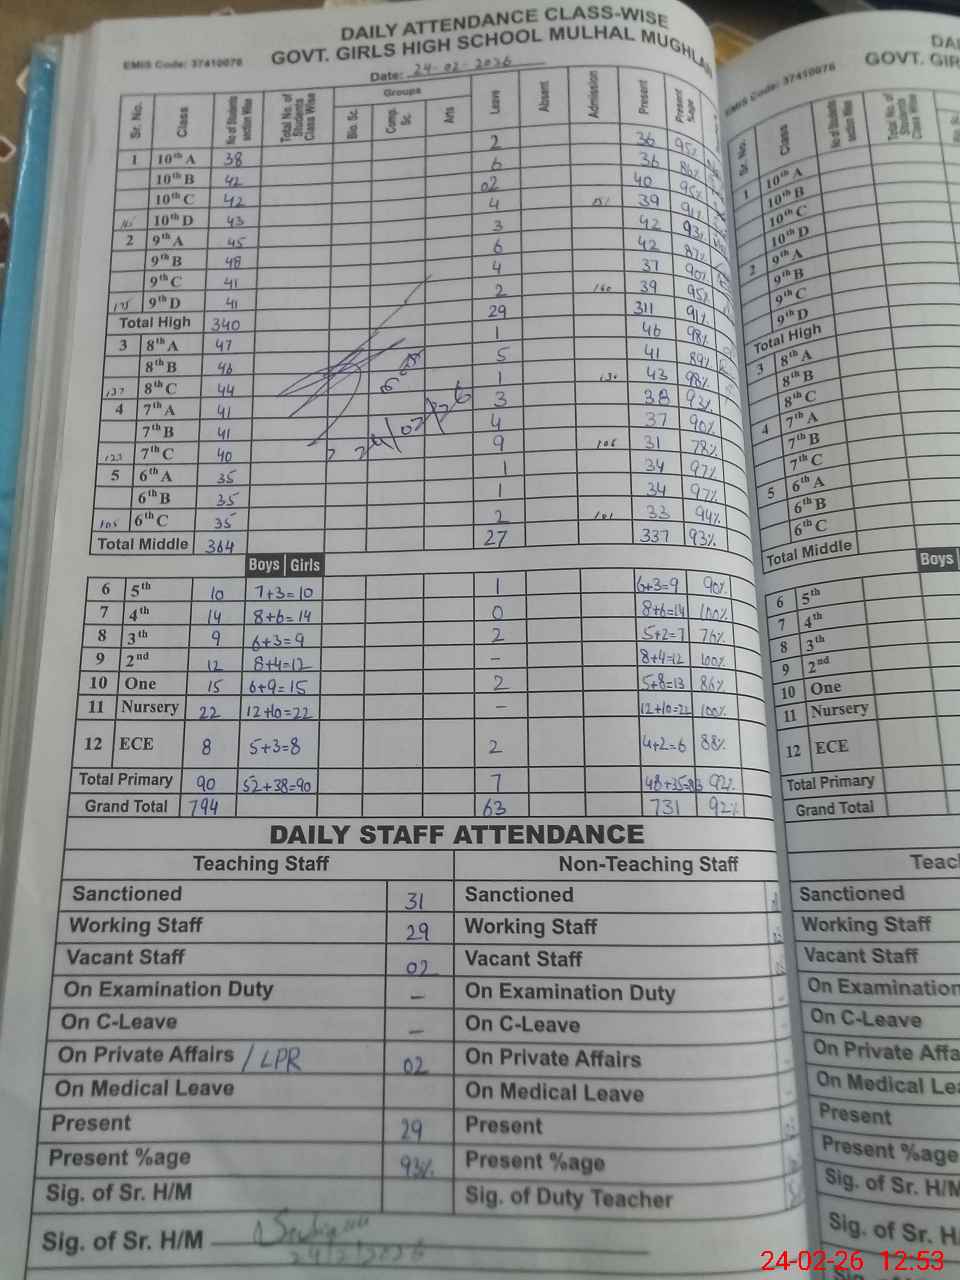 DAILY ATTENDANCE CLASS-WISE
GOVT. GIRLS HIGH SCHOOL MULHAL MUGHLA
EMIS Code: 37410076
Date: 24-02-2026
Sr. No. Class No of Students section Wise Total No. of Students Class Wise Groups Bio. Sc. Comp. Sc. Arts Leave Absent Admission Present Present %age
1 10th A 38 2 36 95%
10th B 42 6 36 86%
10th C 42 02 40 95%
165 10th D 43 4 151 39 91%
2 9th A 45 3 42 93%
9th B 48 6 42 87%
9th C 41 4 37 90%
175 9th D 41 2 160 39 95%
Total High 340 29 311 91%
3 8th A 47 1 46 98%
8th B 46 5 41 89%
137 8th C 44 1 130 43 98%
4 7th A 41 3 38 93%
7th B 41 4 37 90%
122 7th C 40 9 106 31 78%
5 6th A 35 1 34 97%
6th B 35 1 34 97%
105 6th C 35 2 101 33 94%
Total Middle 364 27 337 93%
24/02/26
Boys Girls
6 5th 10 7+3=10 1 6+3=9 90%
7 4th 14 8+6=14 0 8+6=14 100%
8 3th 9 6+3=9 2 5+2=7 76%
9 2nd 12 8+4=12 - 8+4=12 100%
10 One 15 6+9=15 2 5+8=13 86%
11 Nursery 22 12+10=22 - 12+10=22 100%
12 ECE 8 5+3=8 2 4+2=6 88%
Total Primary 90 52+38=90 7 48+35=83 92%
Grand Total 794 63 731 92%
DAILY STAFF ATTENDANCE
Teaching Staff Non-Teaching Staff
Sanctioned 31 Sanctioned
Working Staff 29 Working Staff
Vacant Staff 02 Vacant Staff
On Examination Duty - On Examination Duty
On C-Leave - On C-Leave
On Private Affairs / LPR 02 On Private Affairs
On Medical Leave On Medical Leave
Present 29 Present
Present %age 93% Present %age
Sig. of Sr. H/M Sig. of Duty Teacher
Sig. of Sr. H/M
24/2/2026
DA
GOVT. GIR
EMIS Code: 37410076
Sr. No. Class No of Students section Wise Total No. of Students Class Wise
1 10th A
10th B
10th C
10th D
2 9th A
9th B
9th C
9th D
Total High
3 8th A
8th B
8th C
4 7th A
7th B
7th C
5 6th A
6th B
6th C
Total Middle
Boys
6 5th
7 4th
8 3th
9 2nd
10 One
11 Nursery
12 ECE
Total Primary
Grand Total
Teac
Sanctioned
Working Staff
Vacant Staff
On Examination
On C-Leave
On Private Affa
On Medical Lea
Present
Present %age
Sig. of Sr. H/M
Sig. of Sr. H
24-02-26 12.53